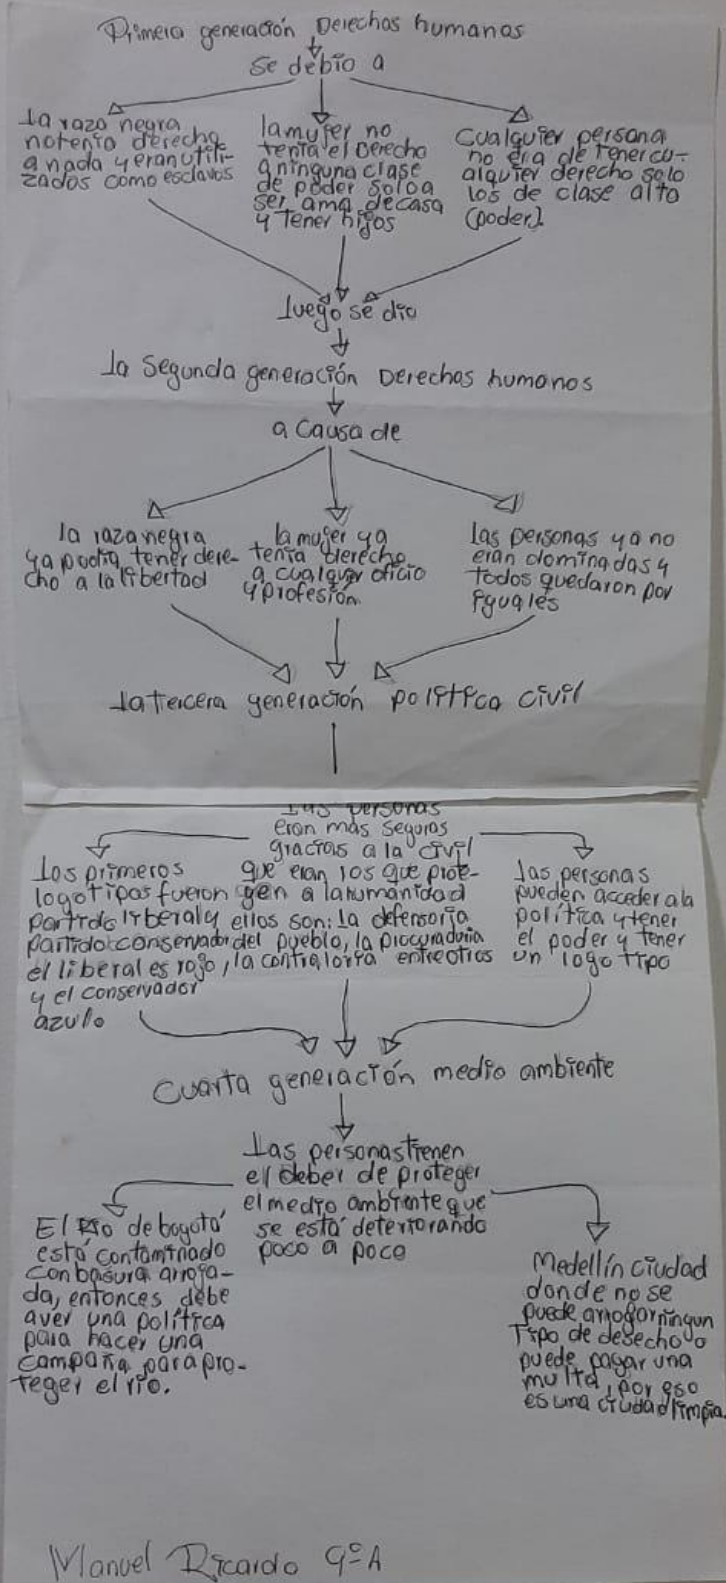 Primera generación Derechos humanos
se debio a
la raza negra
no tenia derecho
a nada y eran utili-
zados como esclavos
la mujer no
tenia el Derecho
a ninguna clase
de poder solo a
ser ama de casa
y tener hijos
Cualquier persona
no era de tener cu-
alquier derecho solo
los de clase alta
(poder).
luego se dio
la Segunda generación Derechos humanos
a Causa de
la raza negra
ya podia tener dere-
cho a la libertad
la mujer ya
tenia derecho
a cualquier oficio
y profesión.
las personas ya no
eran dominadas y
todos quedaron por
iguales
la tercera generación politica civil
Las personas
eran más seguras
gracias a la civil
que eran los que prote-
gen a la humanidad
ellos son: la defensoria
del pueblo, la procuraduria
, la contraloria entre otros
Los primeros
logotipos fueron
partido liberal y
partido conservador
el liberal es rojo
y el conservador
azulo
las personas
pueden acceder a la
politica y tener
el poder y tener
un logo tipo
Cuarta generación medio ambiente
Las personas tienen
el deber de proteger
el medio ambiente que
se está deteriorando
poco a poco
El Rio de bogotá
está contaminado
con basura arroja-
da, entonces debe
aver una política
para hacer una
campaña para pro-
teger el rio.
Medellín ciudad
donde no se
puede arrogar ningun
Tipo de desecho o
puede pagar una
multa, por eso
es una ciudad limpia.
Manuel Ricardo 9°A